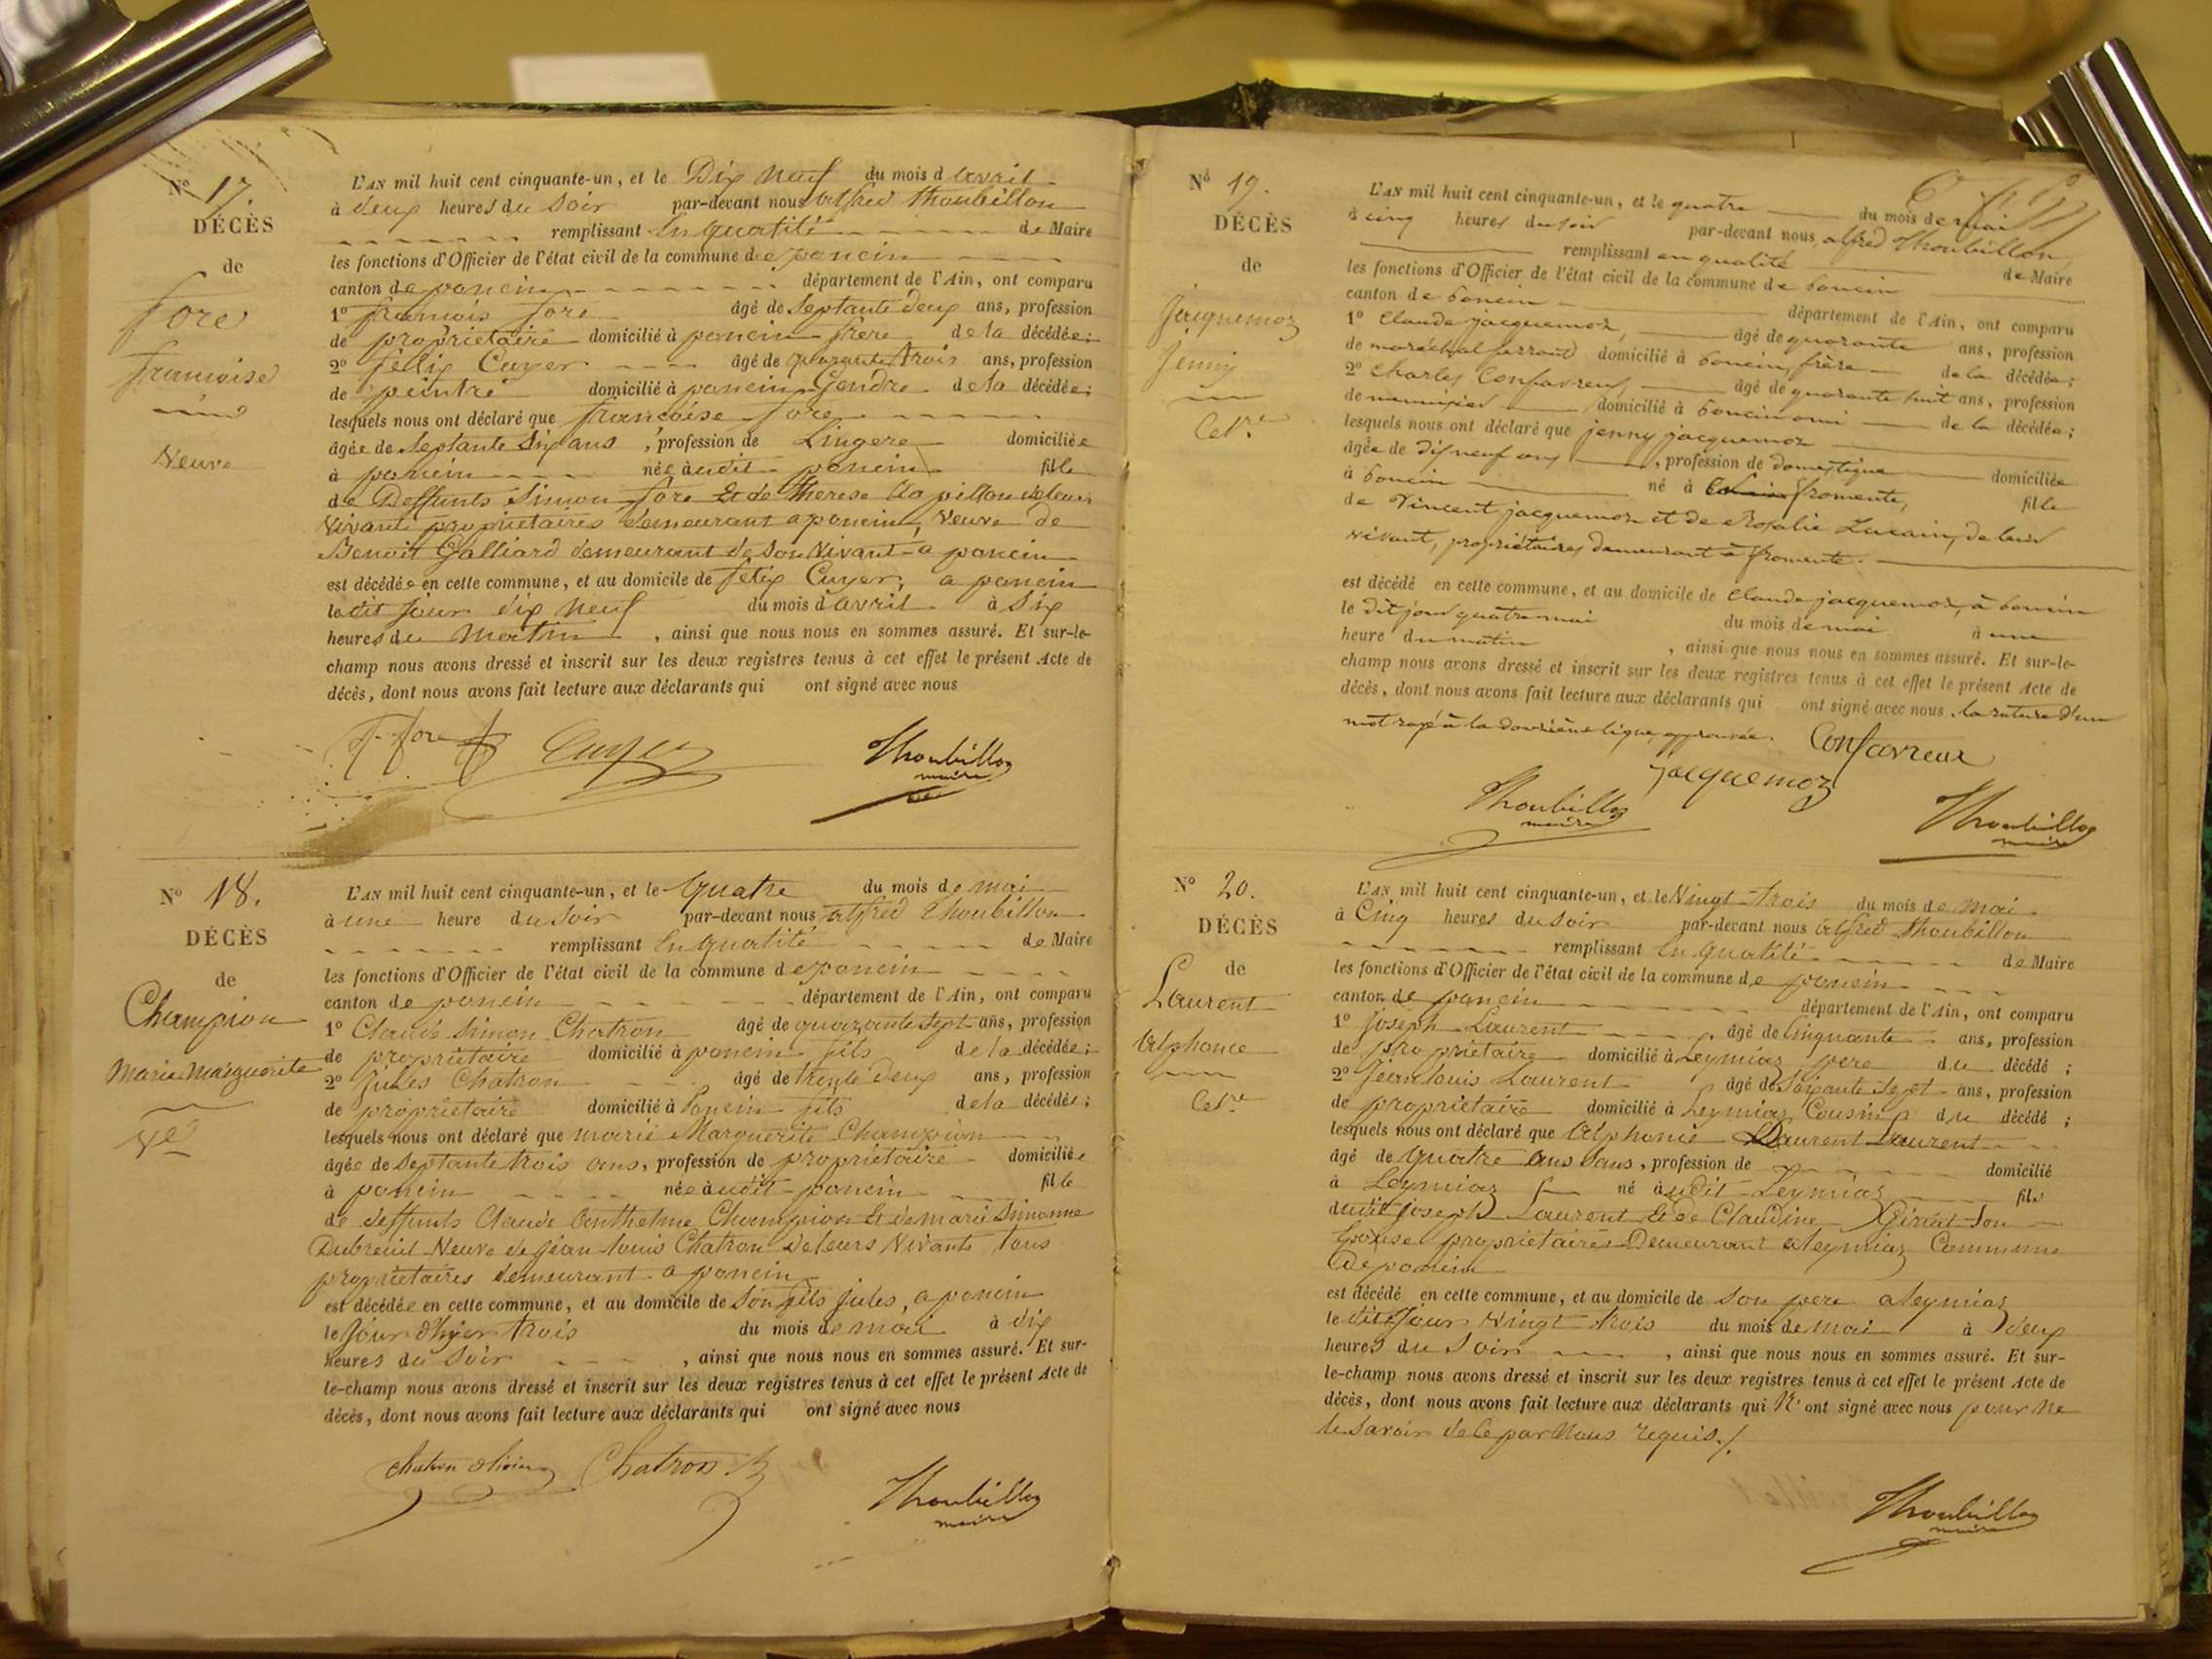 Nº 17.
DÉCÈS
de
fore
francoise
Veuve
L'AN mil huit cent cinquante-un, et le Dix Neuf du mois d avril
à deux heures du Soir par-devant nous alfred thoubillon
remplissant En qualité de Maire
les fonctions d'Officier de l'état civil de la commune de poncin
canton de poncin département de l'Ain, ont comparu
1º francois fore âgé de Septante deux ans, profession
de propriétaire domicilié à poncin frere de la décédée;
2º félix Cuyer âgé de quarante trois ans, profession
de peintre domicilié à poncin Gendre de la décédée;
lesquels nous ont déclaré que francoise fore
âgée de Septante Six ans, profession de Lingere domiciliée
à poncin née audit poncin fille
de Deffunts Simon fore Et de therese deleurs
Vivants propriétaires demeurant a poncin, Veuve de
Benoit Galliard demeurant de Son Vivant a poncin
est décédée en cette commune, et au domicile de félix Cuyer, a poncin
le dit Jour dix neuf du mois d avril à Six
heures du Matin, ainsi que nous nous en sommes assuré. Et sur-le-
champ nous avons dressé et inscrit sur les deux registres tenus à cet effet le présent Acte de
décès, dont nous avons fait lecture aux déclarants qui ont signé avec nous
f. fore Cuyer Thoubillon
maire
Nº 18.
DÉCÈS
de
Champion
Marie Marguerite
Ve
L'AN mil huit cent cinquante-un, et le Quatre du mois de mai
à une heure du Soir par-devant nous alfred Thoubillon
remplissant En qualité de Maire
les fonctions d'Officier de l'état civil de la commune de poncin
canton de poncin département de l'Ain, ont comparu
1º Claude Simon Chatron âgé de quarante Sept ans, profession
de propriétaire domicilié à poncin fils de la décédée;
2º Jules Chatron âgé de trente deux ans, profession
de propriétaire domicilié à Poncin fils de la décédée;
lesquels nous ont déclaré que marie Marguerite Champion
âgée de Septante trois ans, profession de propriétaire domiciliée
à poncin née audit poncin fille
de deffunts Claude Anthelme Champion Et de marie Simonne
Dubreuil Veuve de Jean Louis Chatron deleurs Vivants tous
propriétaires demeurant a poncin
est décédée en cette commune, et au domicile de Son fils Jules, a poncin
le Jour d'hier trois du mois de mai à dix
heures du Soir, ainsi que nous nous en sommes assuré. Et sur-
le-champ nous avons dressé et inscrit sur les deux registres tenus à cet effet le présent Acte de
décès, dont nous avons fait lecture aux déclarants qui ont signé avec nous
Chatron Chatron Thoubillon
maire
Nº 19.
DÉCÈS
de
Jacquemoz
Jenny
Celre
L'AN mil huit cent cinquante-un, et le quatre du mois de mai
à cinq heures du soir par-devant nous alfred Thoubillon
remplissant en qualité de Maire
les fonctions d'Officier de l'état civil de la commune de Poncin
canton de Poncin département de l'Ain, ont comparu
1º Claude jacquemoz, âgé de quarante ans, profession
de maréchal ferrant domicilié à Poncin, frère de la décédée;
2º Charles Confavreux, âgé de quarante huit ans, profession
de menuisier domicilié à Poncin ami de la décédée;
lesquels nous ont déclaré que jenny jacquemoz
âgée de dix neuf ans, profession de domestique domiciliée
à Poncin né à fromente, fille
de Vincent jacquemoz et de Rosalie Lucain, de leur
vivant, propriétaires demeurant à fromente.
est décédé en cette commune, et au domicile de Claude jacquemoz, à Poncin
le dit jour quatre mai du mois de mai à une
heure du matin, ainsi que nous nous en sommes assuré. Et sur-le-
champ nous avons dressé et inscrit sur les deux registres tenus à cet effet le présent Acte de
décès, dont nous avons fait lecture aux déclarants qui ont signé avec nous. la rature d'un
mot rayé à la douzième ligne, approuvée. Confavreux
jacquemoz
Thoubillon Thoubillon
maire maire
Nº 20.
DÉCÈS
de
Laurent
Alphonce
Celre
L'AN mil huit cent cinquante-un, et le Vingt trois du mois de mai
à Cinq heures du Soir par-devant nous alfred thoubillon
remplissant En qualité de Maire
les fonctions d'Officier de l'état civil de la commune de poncin
canton de poncin département de l'Ain, ont comparu
1º joseph Laurent âgé de Cinquante ans, profession
de propriétaire domicilié à Leymiaz pere du décédé;
2º Jean louis Laurent âgé de Soixante Sept ans, profession
de propriétaire domicilié à Leymiaz Cousin du décédé;
lesquels nous ont déclaré que Alphonse Laurent Laurent
âgé de quatre ans Sans, profession de domicilié
à Leymiaz né audit Leymiaz fils
dudit joseph Laurent Et de Claudine Giriat Son
Epouse propriétaires Demeurant a Leymiaz Commune
De poncin
est décédé en cette commune, et au domicile de Son pere a Leymiaz
le dit Jour Vingt trois du mois de mai à deux
heures du Soir, ainsi que nous nous en sommes assuré. Et sur-
le-champ nous avons dressé et inscrit sur les deux registres tenus à cet effet le présent Acte de
décès, dont nous avons fait lecture aux déclarants qui N'ont signé avec nous pour ne
le Savoir de Ce par Nous requis./.
Thoubillon
maire